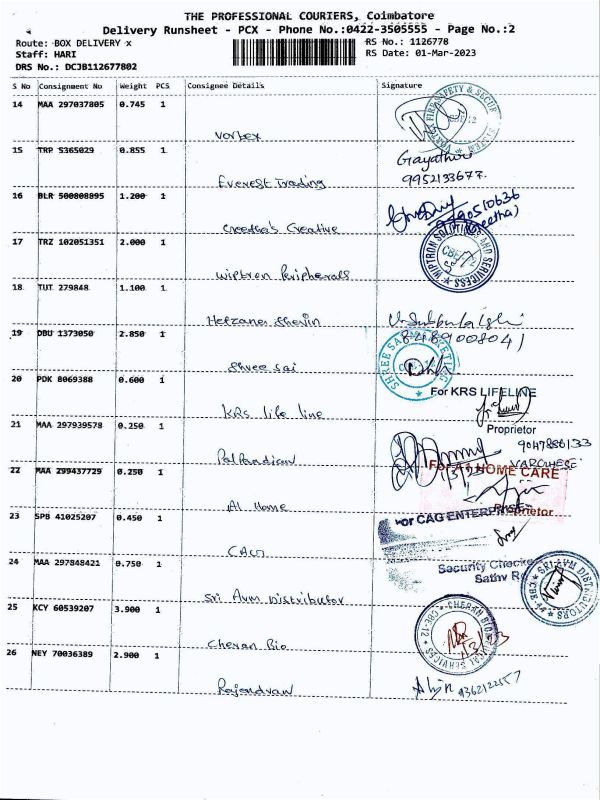 THE PROFESSIONAL COURIERS, Coimbatore
Delivery Runsheet - PCX - Phone No.:0422-3505555 - Page No.:2
Route: BOX DELIVERY x
Staff: HARI
DRS No.: DCJB112677802
RS No.: 1126778
RS Date: 01-Mar-2023
S No Consignment No Weight PCS Consignee Details Signature
14 MAA 297037805 0.745 1
Vorbex
15 TRP 5365029 0.855 1
Everest Trading
Gayathri
9952133677.
16 BLR 500808895 1.200 1
Geetha's Creative
17 TRZ 102051351 2.000 1
Wiptron Peripherals
18 TUT 279848 1.100 1
Hefzane Shevin
8489008041
19 DBU 1373050 2.850 1
Shree sai
20 PDK 8069388 0.600 1
KRS life line
For KRS LIFELINE
Proprietor
21 MAA 297939578 0.250 1
Pal Pandian
22 MAA 299437729 0.250 1
Al Home
HOME CARE
Proprietor
23 SPB 41025207 0.450 1
CAG
For CAG ENTERPRISE
24 MAA 297848421 0.750 1
Sri Avm Distributor
Security Checked
SRI AVM DISTRIBUTORS
CBE-44
25 KCY 60539207 3.900 1
Cheran Bio
CHERAN BIO
CBE-12
26 NEY 70036389 2.900 1
Rajendran